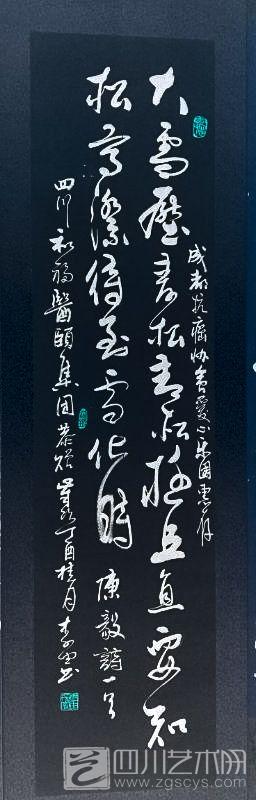 成都抗癌协會愛心乐園惠存
大雪壓青松青松挺且直要知
松高潔待到雪化時 陳毅詩一首
四川福醫頤集团恭贈 歲次丁酉桂月李书
四川艺术网
www.zgscys.com